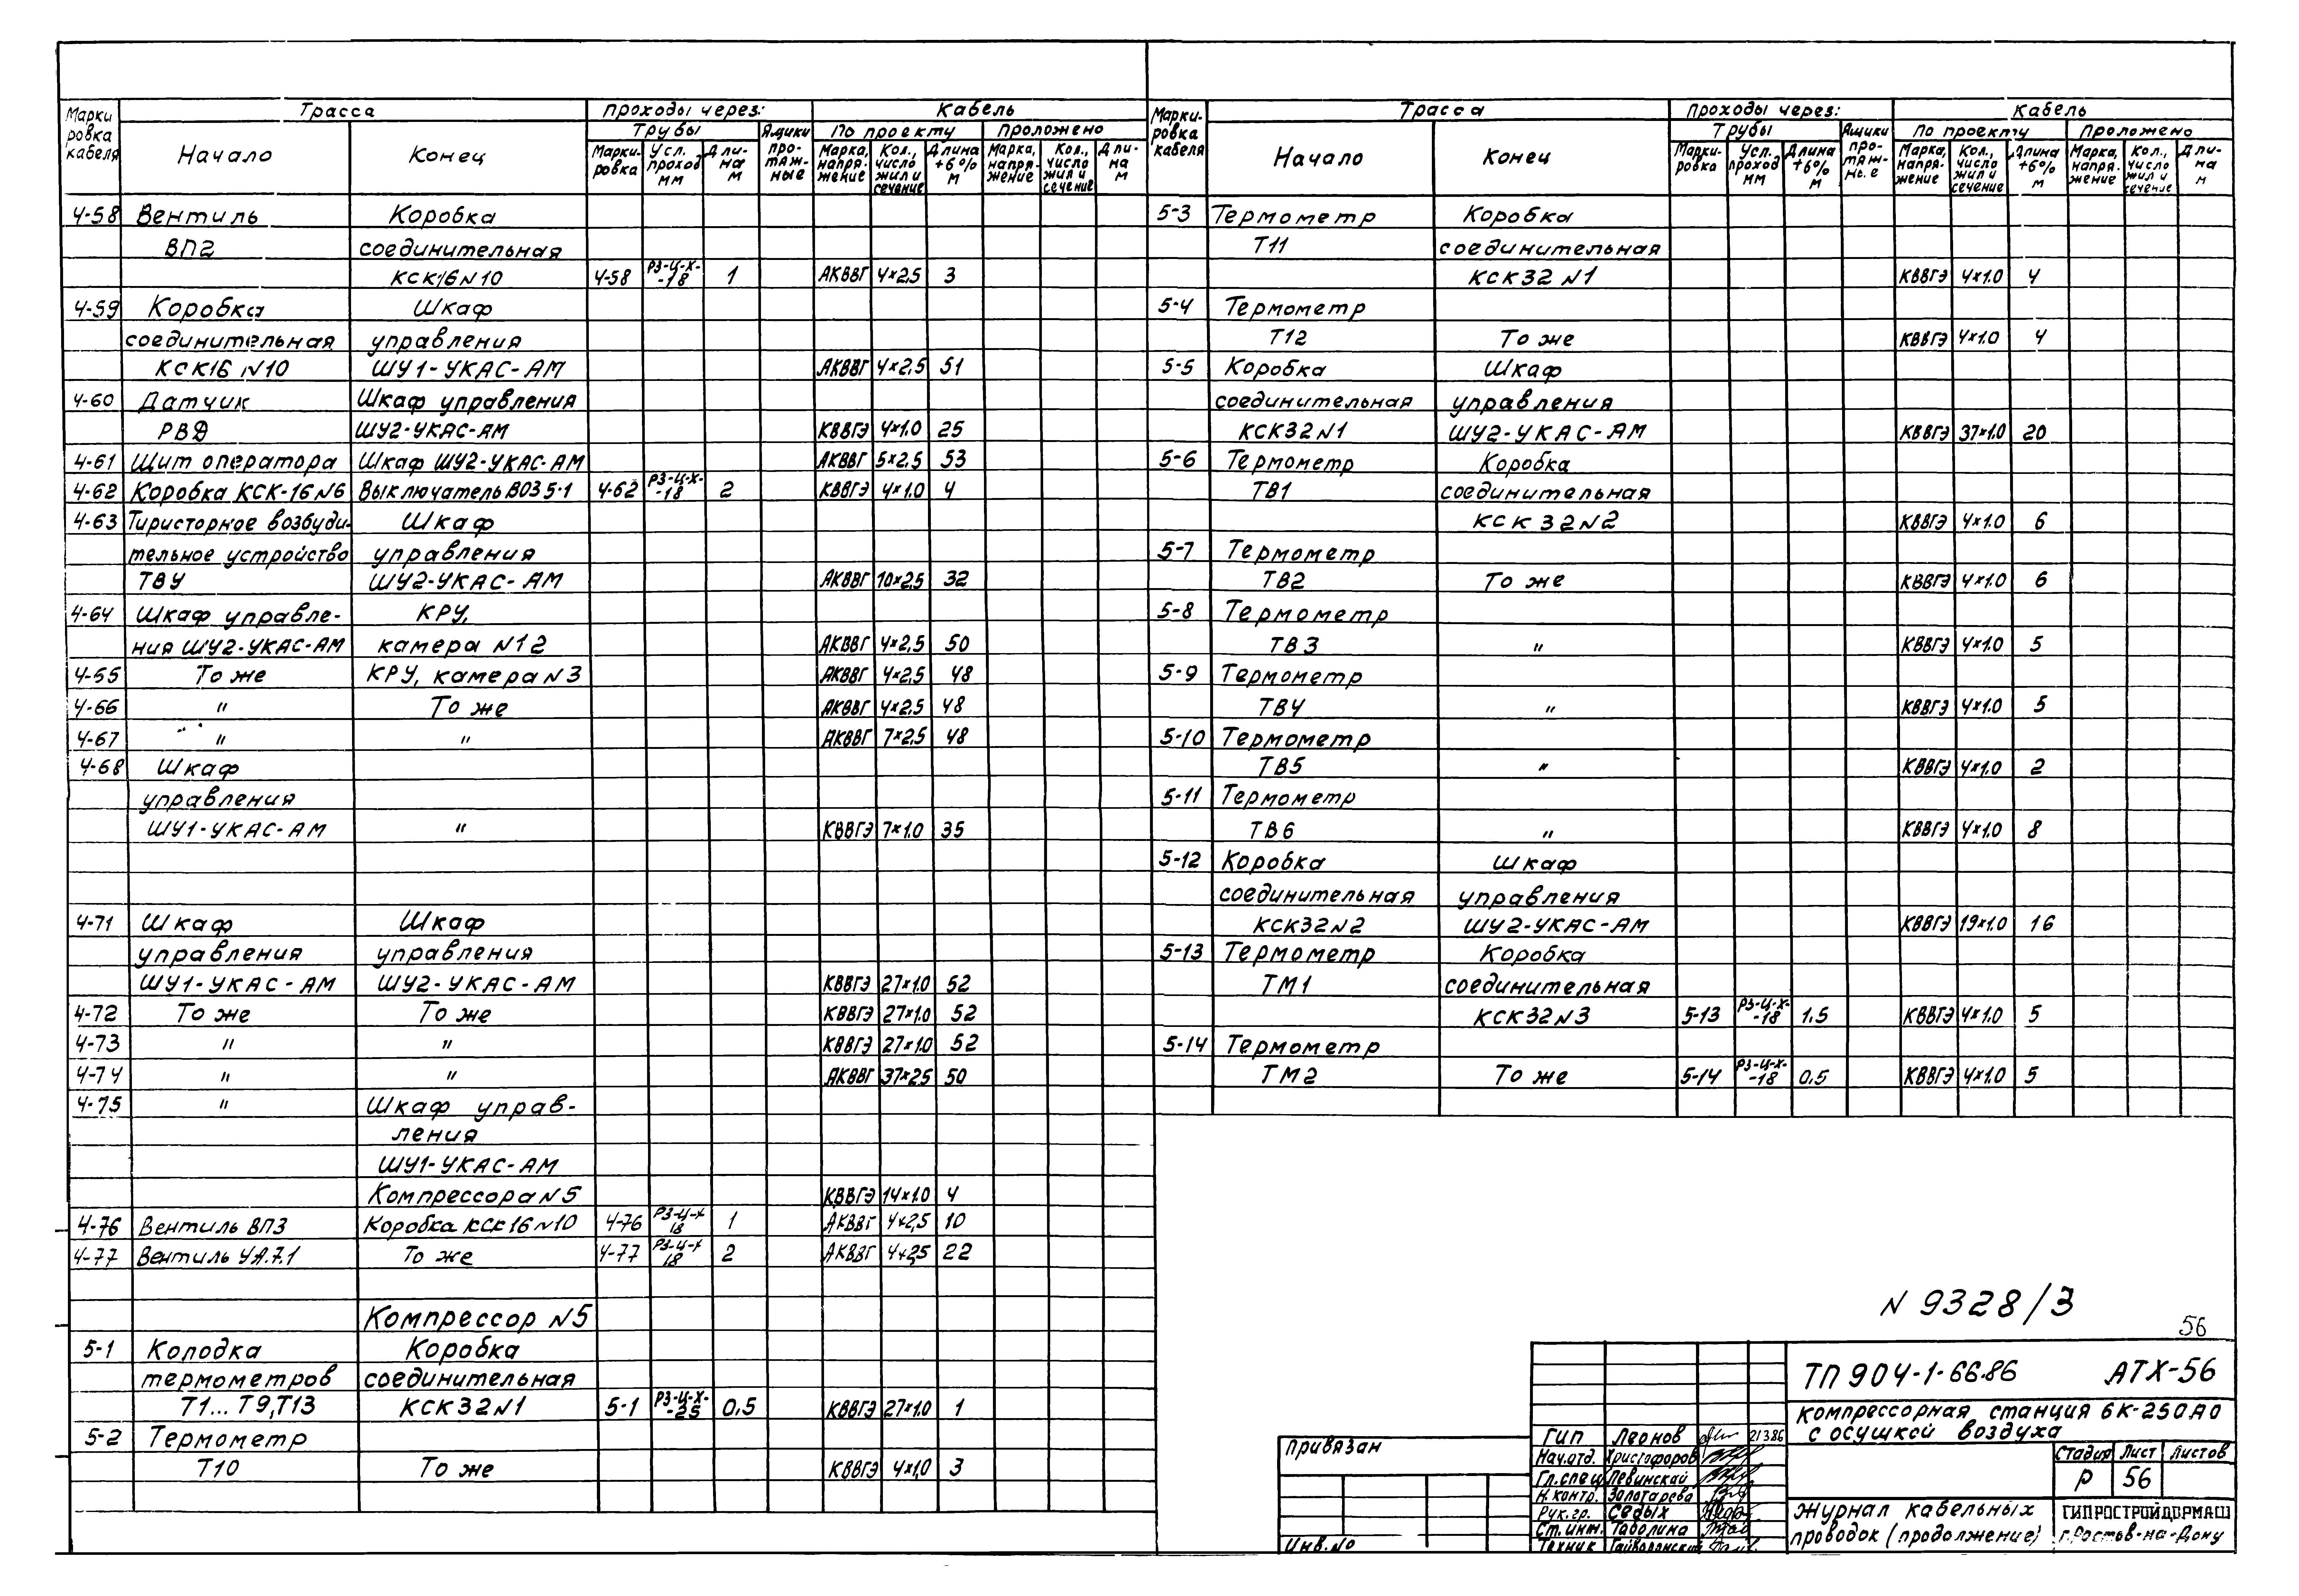 Марки ровка кабеля | Трасса | Проходы через: | Кабель
Трубы | Ящики про- тяж- ные | По проекту | Проложено
Начало | Конец | Марки- ровка | Усл. проход мм | Дли- на м | Марка, напря- жение | Кол., число жил и сечение | Длина +6% м | Марка, напря- жение | Кол., число жил и сечение | Дли- на м
4-58 Вентиль Коробка
ВП2 соединительная
КСК16 N10 4-58 РЗ-Ц-Х- -18 1 АКВВГ 4×2,5 3
4-59 Коробка Шкаф
соединительная управления
КСК16 N10 ШУ1-УКАС-АМ АКВВГ 4×2,5 51
4-60 Датчик Шкаф управления
РВД ШУ2-УКАС-АМ КВВГЭ 4×1.0 25
4-61 Щит оператора Шкаф ШУ2-УКАС-АМ АКВВГ 5×2,5 53
4-62 Коробка КСК-16 N6 Выключатель В03 5-1 4-62 РЗ-Ц-Х- -18 2 КВВГЭ 4×1.0 4
4-63 Тиристорное возбуди- Шкаф
тельное устройство управления
ТВУ ШУ2-УКАС-АМ АКВВГ 10×2,5 32
4-64 Шкаф управле- КРУ,
ния ШУ2-УКАС-АМ камера N12 АКВВГ 4×2,5 50
4-65 То же КРУ, камера N3 АКВВГ 4×2,5 48
4-66 " То же АКВВГ 4×2,5 48
4-67 " " АКВВГ 7×2,5 48
4-68 Шкаф
управления
ШУ1-УКАС-АМ " КВВГЭ 7×1.0 35
4-71 Шкаф Шкаф
управления управления
ШУ1-УКАС-АМ ШУ2-УКАС-АМ КВВГЭ 27×1.0 52
4-72 То же То же КВВГЭ 27×1.0 52
4-73 " " КВВГЭ 27×1.0 52
4-74 " " АКВВГ 37×2,5 50
4-75 " Шкаф управ-
ления
ШУ1-УКАС-АМ
Компрессора N5 КВВГЭ 14×1.0 4
4-76 Вентиль ВП3 Коробка КСК16 N10 4-76 РЗ-Ц-Х 18 1 АКВВГ 4×2,5 10
4-77 Вентиль УА.7.1 То же 4-77 РЗ-Ц-Х 18 2 АКВВГ 4×2,5 22
Компрессор N5
5-1 Колодка Коробка
термометров соединительная
Т1...Т9,Т13 КСК32 N1 5-1 РЗ-Ц-Х- -25 0,5 КВВГЭ 27×1.0 1
5-2 Термометр
Т10 То же КВВГЭ 4×1,0 3
Марки- ровка кабеля | Трасса | Проходы через: | Кабель
Трубы | Ящики про- тяж- ны.е | По проекту | Проложено
Начало | Конец | Марки- ровка | Усл. проход мм | Длина +6% м | Марка, напря- жение | Кол., число жил и сечение | Длина +6% м | Марка, напря- жение | Кол., число жил и сечение | Дли- на м
5-3 Термометр Коробка
Т11 соединительная
КСК32 N1 КВВГЭ 4×1.0 4
5-4 Термометр
Т12 То же КВВГЭ 4×1.0 4
5-5 Коробка Шкаф
соединительная управления
КСК32 N1 ШУ2-УКАС-АМ КВВГЭ 37×1.0 20
5-6 Термометр Коробка
ТВ1 соединительная
КСК 32 N2 КВВГЭ 4×1.0 6
5-7 Термометр
ТВ2 То же КВВГЭ 4×1.0 6
5-8 Термометр
ТВ3 " КВВГЭ 4×1.0 5
5-9 Термометр
ТВ4 " КВВГЭ 4×1.0 5
5-10 Термометр
ТВ5 " КВВГЭ 4×1.0 2
5-11 Термометр
ТВ6 " КВВГЭ 4×1.0 8
5-12 Коробка Шкаф
соединительная управления
КСК32 N2 ШУ2-УКАС-АМ КВВГЭ 19×1.0 16
5-13 Термометр Коробка
ТМ1 соединительная
КСК32 N3 5-13 РЗ-Ц-Х- -18 1.5 КВВГЭ 4×1.0 5
5-14 Термометр
ТМ2 То же 5-14 РЗ-Ц-Х- -18 0.5 КВВГЭ 4×1.0 5
N 9328/3
56
ТП 904-1-66.86 АТХ-56
Компрессорная станция 6К-250А0
с осушкой воздуха
Стадия Лист Листов
Р 56
Журнал кабельных
проводок (продолжение)
ГИПРОСТРОЙДОРМАШ
г.Ростов-на-Дону
ГИП Леонов 21386
Нач.отд. Христофоров
Гл.спец. Левинский
Н.контр. Золотарева
Рук.гр. Седых
Ст.инж. Таболина
Техник Гайворонский
Привязан
Инв.No